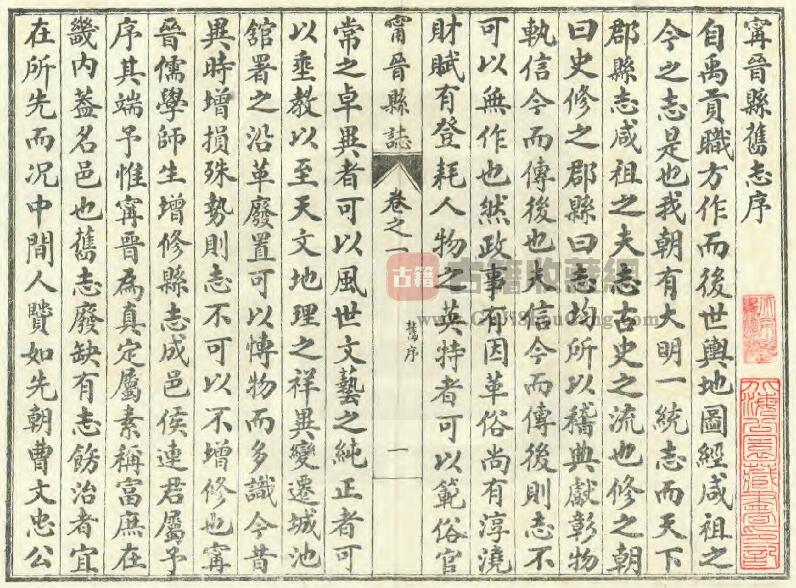 甯晉縣舊志序
自禹貢職方作而後世輿地圖經咸祖之
今之志是也我朝有大明一統志而天下
郡縣志咸祖之夫志古史之流也修之朝
曰史修之郡縣曰志均所以稽典獻彰物
執信今而傳後也夫信今而傳後則志不
可以無作也然政事有因革俗尚有淳澆
財賦有登耗人物之英特者可以範俗官
甯晉縣誌
卷之一
舊序
一
常之卓異者可以風世文藝之純正者可
以垂教以至天文地理之祥異變遷城池
舘署之沿革廢置可以慱物而多識今昔
異時增損殊勢則志不可以不增修也甯
晉儒學師生增修縣志成邑侯連君屬予
序其端予惟甯晉為真定屬素稱富庶在
畿内葢名邑也舊志廢缺有志飭治者宜
在所先而况中間人賢如先朝曹文忠公
古籍
古籍收藏網